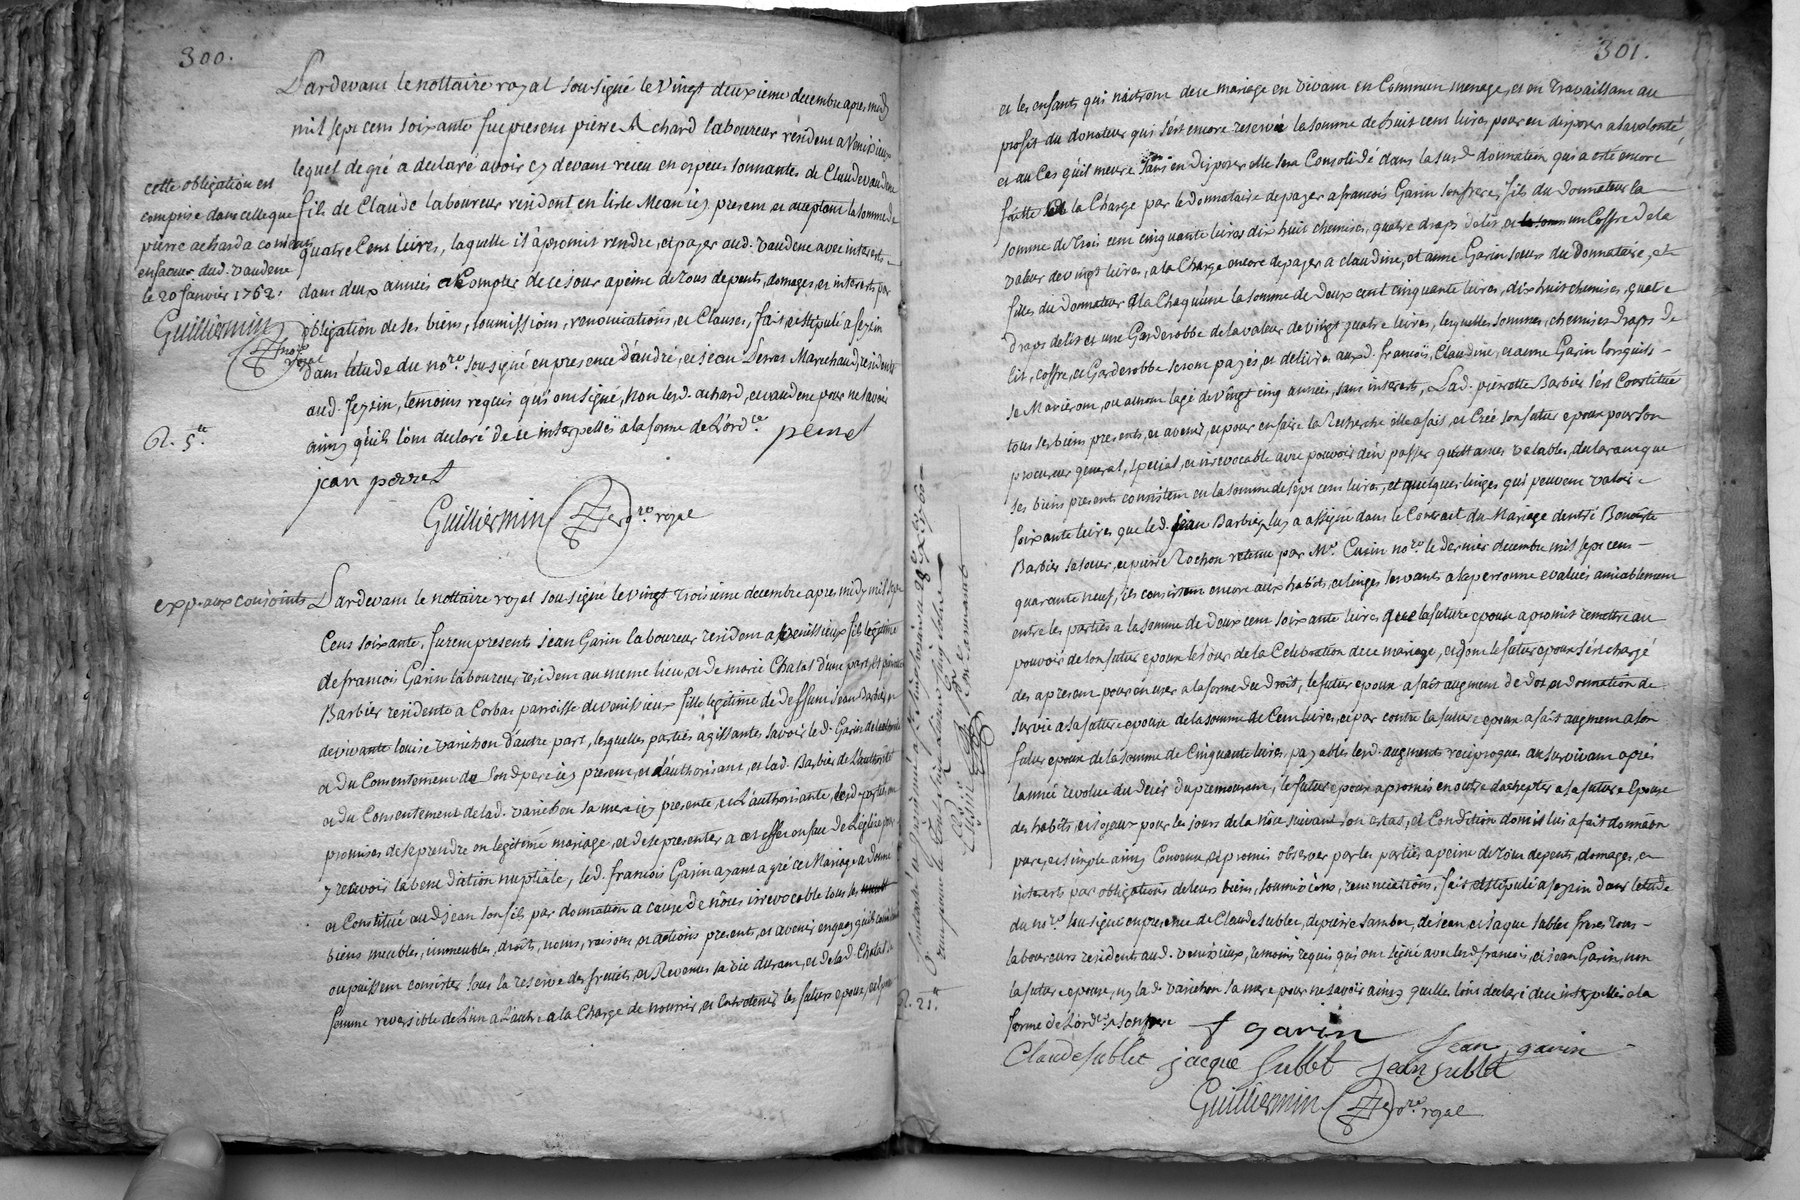 300.
Pardevant le nottaire royal sousigné le vingt deuxieme decembre apres midy
mil sept cens soixante fut present pierre Achard laboureur résident a Venissieux
lequel de gré a declaré avoir cy devant reçu en especes sonnantes de Claude vaudene
fils de Claude laboureur resident en lisle present et acceptant la somme de
quatre Cens livres, laquelle il a promis rendre, et payer aud. vaudene avec interests
dans deux années a Compter de ce jour a peine de tous depents, domages, et interests par
obligation de ses biens, soumissions, renonciations, et Clauses, fait et stipulé a feyzin
dans letude du nore. sousigné en presence d'andré, et jean Serras Marechaux residents
aud. feyzin, temoins requis qui ont signé, Non lesd. achard, et vaudene pour ne savoir
ainsy qu'ils l'ont declaré de ce interpellés a la forme de L'ordce.
jean
Guilliermin nore. royal
cette obligation est
comprise dans celle que
pierre achard a
en faveur dud. vaudene
le 20 Janvier 1762.
Guilliermin
nore
royal
R. 5 tt
exp. aux conjoints
Pardevant le nottaire royal sousigné le vingt troisieme decembre apres midy mil sept
Cens soixante, furent present jean Garin laboureur resident a Venissieux fils légitime
de francois Garin laboureur resident au meme lieu, et de marie Chatat d'une part, et pierrotte
Barbier residente a Corbas parroisse de venissieux fille legitime de deffunt jean Barbier, et
de vivante louise varichon d'autre part, lesquelles parties agissantes savoir led. Garin de lauthorité
et du Consentement de Sond. pere icy present, et L'authorisant, et lad. Barbier de L'authorité
et du Consentement de lad. varichon sa mere icy presente, et L'authorisante, lesd. parties ont
promises de se prendre en legitime mariage, et de se presenter a cet effet en face de L'église pour
y recevoir la benediction nuptiale, led. francois Garin ayant agréé ce Mariage a donné
et Constitué aud. jean son fils par donnation a cause de nôces irrevocable tous les
biens meubles, immeubles, droits, noms, raisons, et actions present, et avenir en quoy qu'ils
ou puissent consister sous la reserve des fruits, et Revenus sa vie durant, et de lad. Chatat sa
femme reversible de L'un a L'autre a la Charge de nourrir, et entretenir les futurs epoux,
301.
et les enfants qui naitront de ce mariage en vivant en Commun menage, et en travaillant au
profit du donateur qui s'est encore reservé la somme de huit cent livres pour en disposer a sa volonté,
et au Cas qu'il meure sans en disposer elle sera Consolidé dans la susd. donnation qui a eté encore
faitte a la Charge par le donnataire de payer a francois Garin son frere, fils du Donnateur la
somme de trois cent cinquante livres dix huit chemises, quatre draps de lit, et un Coffre de la
valeur de vingt livres, a la Charge encore de payer a claudine, et anne Garin soeurs du Donnataire, et
filles du Donnateur a Chaquune la somme de Deux cent cinquante livres, dix huit chemises, quatre
draps de lit et une Garderobbe de la valeur de vingt quatre livres, lesquelles sommes, chemises draps de
lit, coffre, et Garderobbe seront payés, et delivrés auxd. francois, Claudine, et anne Garin lorsquils
se Marieront, ou auront lage de vingt cinq années, sans interests, Lad. pierrotte Barbier s'est Constituée
tous ses biens presents, et avenir, et pour en faire la Recherche elle a fait, et Créé son futur epoux pour son
procureur general, special, et irrevocable avec pouvoir d'en passer quittances valables, declarant que
ses biens present consistent en la somme de sept cent livres, et quelques linges qui peuvent valoir
soixante livres que led. jean Barbier luy a assigné dans le Contrat du Mariage dentre Benoiste
Barbier sa soeur, et pierre Rochon retenu par Me. Cusin nore. le dernier decembre mil sept cent
quarante neuf, ils consistent encore aux habits, et linges servants a la personne evalués amiablement
entre les parties a la somme de deux cent soixante livres que la future epouse a promis remettre au
pouvoir de son futur epoux le jour de la Celebration de ce mariage, et dont le futur epoux s'est chargé
des apresent pour en user a la forme du droit, le futur epoux a fait augment de dot, et donnation de
survie a sa future epouse de la somme de Cent livres, et par contre la future epouse a fait augment a son
futur epoux de la somme de Cinquante livres, payables lesd. augments reciproques au survivant aprés
l'année revolue du decés du premourant, le futur epoux a promis en outre dachepter a sa future Epouse
des habits, et joyeux pour les jours de la nôce suivant son estat, et Condition dont il lui a fait donnation
pure, et simple ainsy Convenu, et promis observer par les parties a peine de tous depents, domages, et
interests par obligations de leurs biens, soumissions, renonciations, fait et stipulé a feyzin dans letude
du nore. sousigné en presence de Claude Sublet, de pierre Sambet, de jean, et jaque Sublet freres tous
laboureurs residents aud. venissieux, temoins requis qui ont signé avec lesd. francois, et jean Garin, non
la future epouse, ny lad. varichon sa mere pour ne savoir ainsy quelles l'ont declaré de ce interpellés a la
forme de L'ordce.
f garin
Jean garin
Claude Sublet jacque Sublet Jean Sublet
Guilliermin nore. royal
R. 21 tt